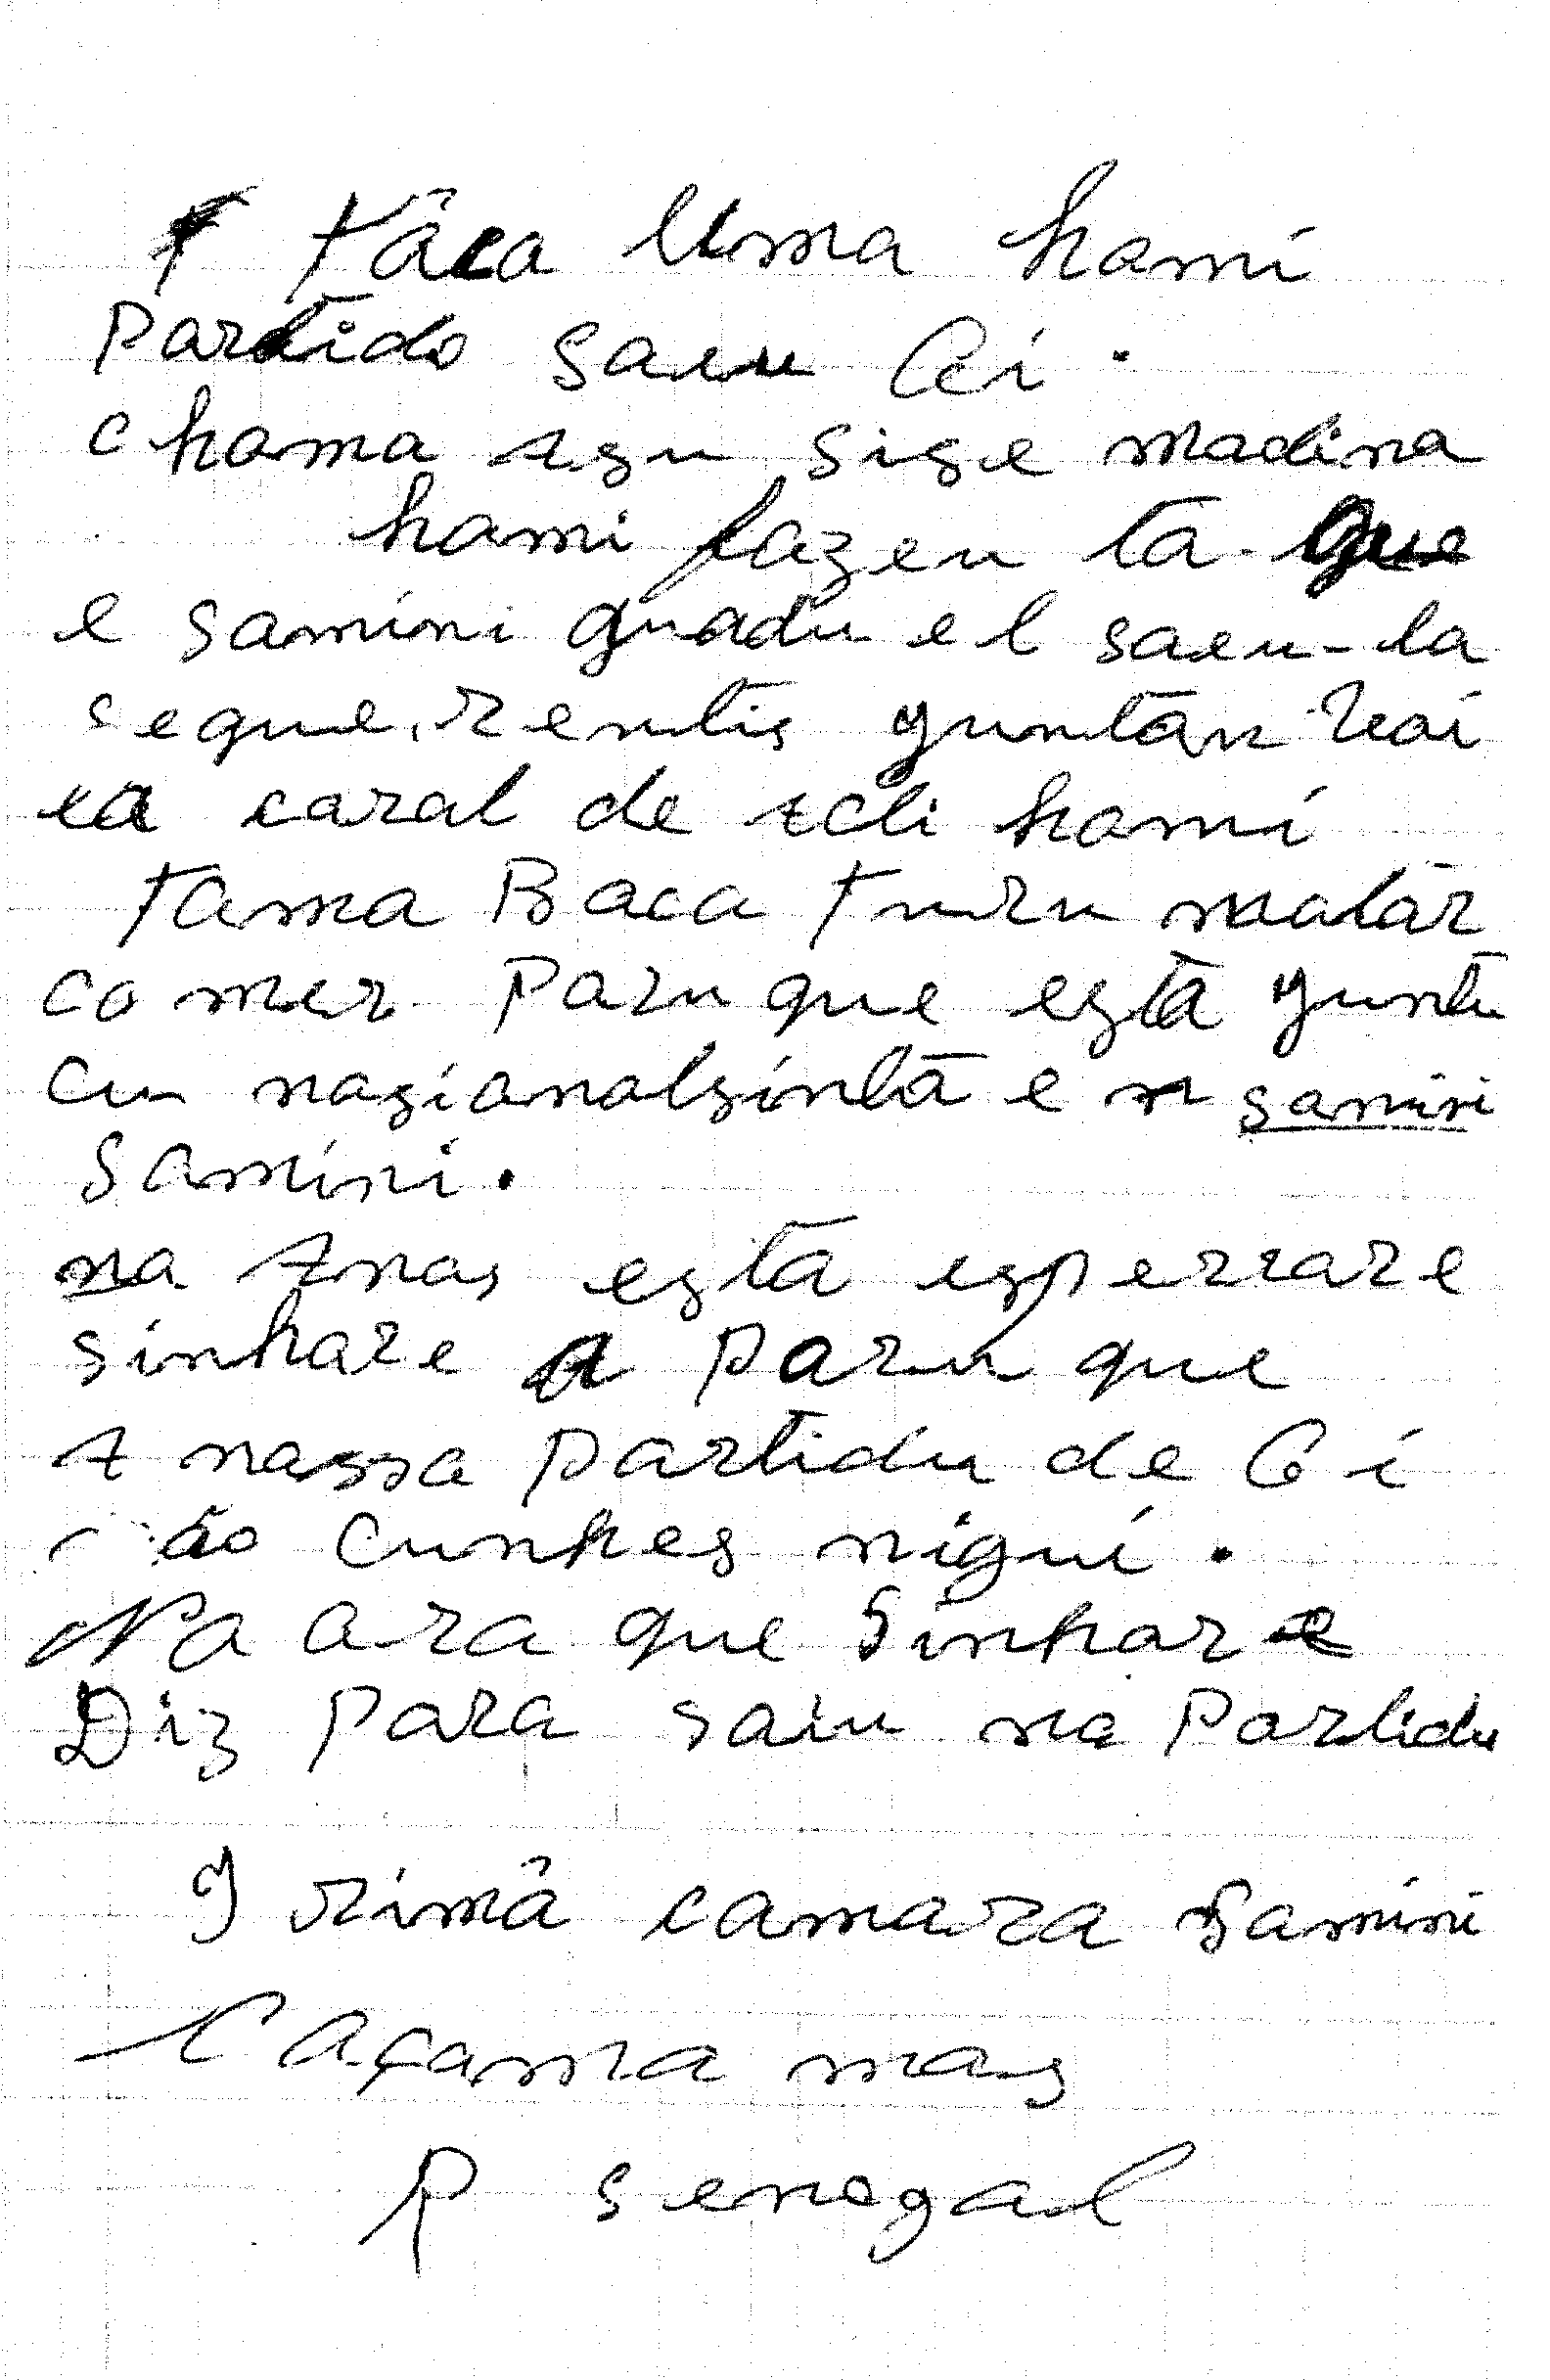 Tâca Uma hami
Partido saeu Cei.
chama asu sise madina
hami fazeu ta que
e samini guadu el saeu-la
seque, rentis guntan vai
ca caral de eli hami
Tama Baca turu matar
comer Paru que está guntu
cu nasianalsintâ e samini
samini.
na Anas está esperrare
sinhare A Paru que
A nassa Partidu de Cei
ão cunhes nigui.
Na ara que Sinhare
Diz Para saiu na Partidu
I rimâ camara Samini
Caçama mas
R senegal